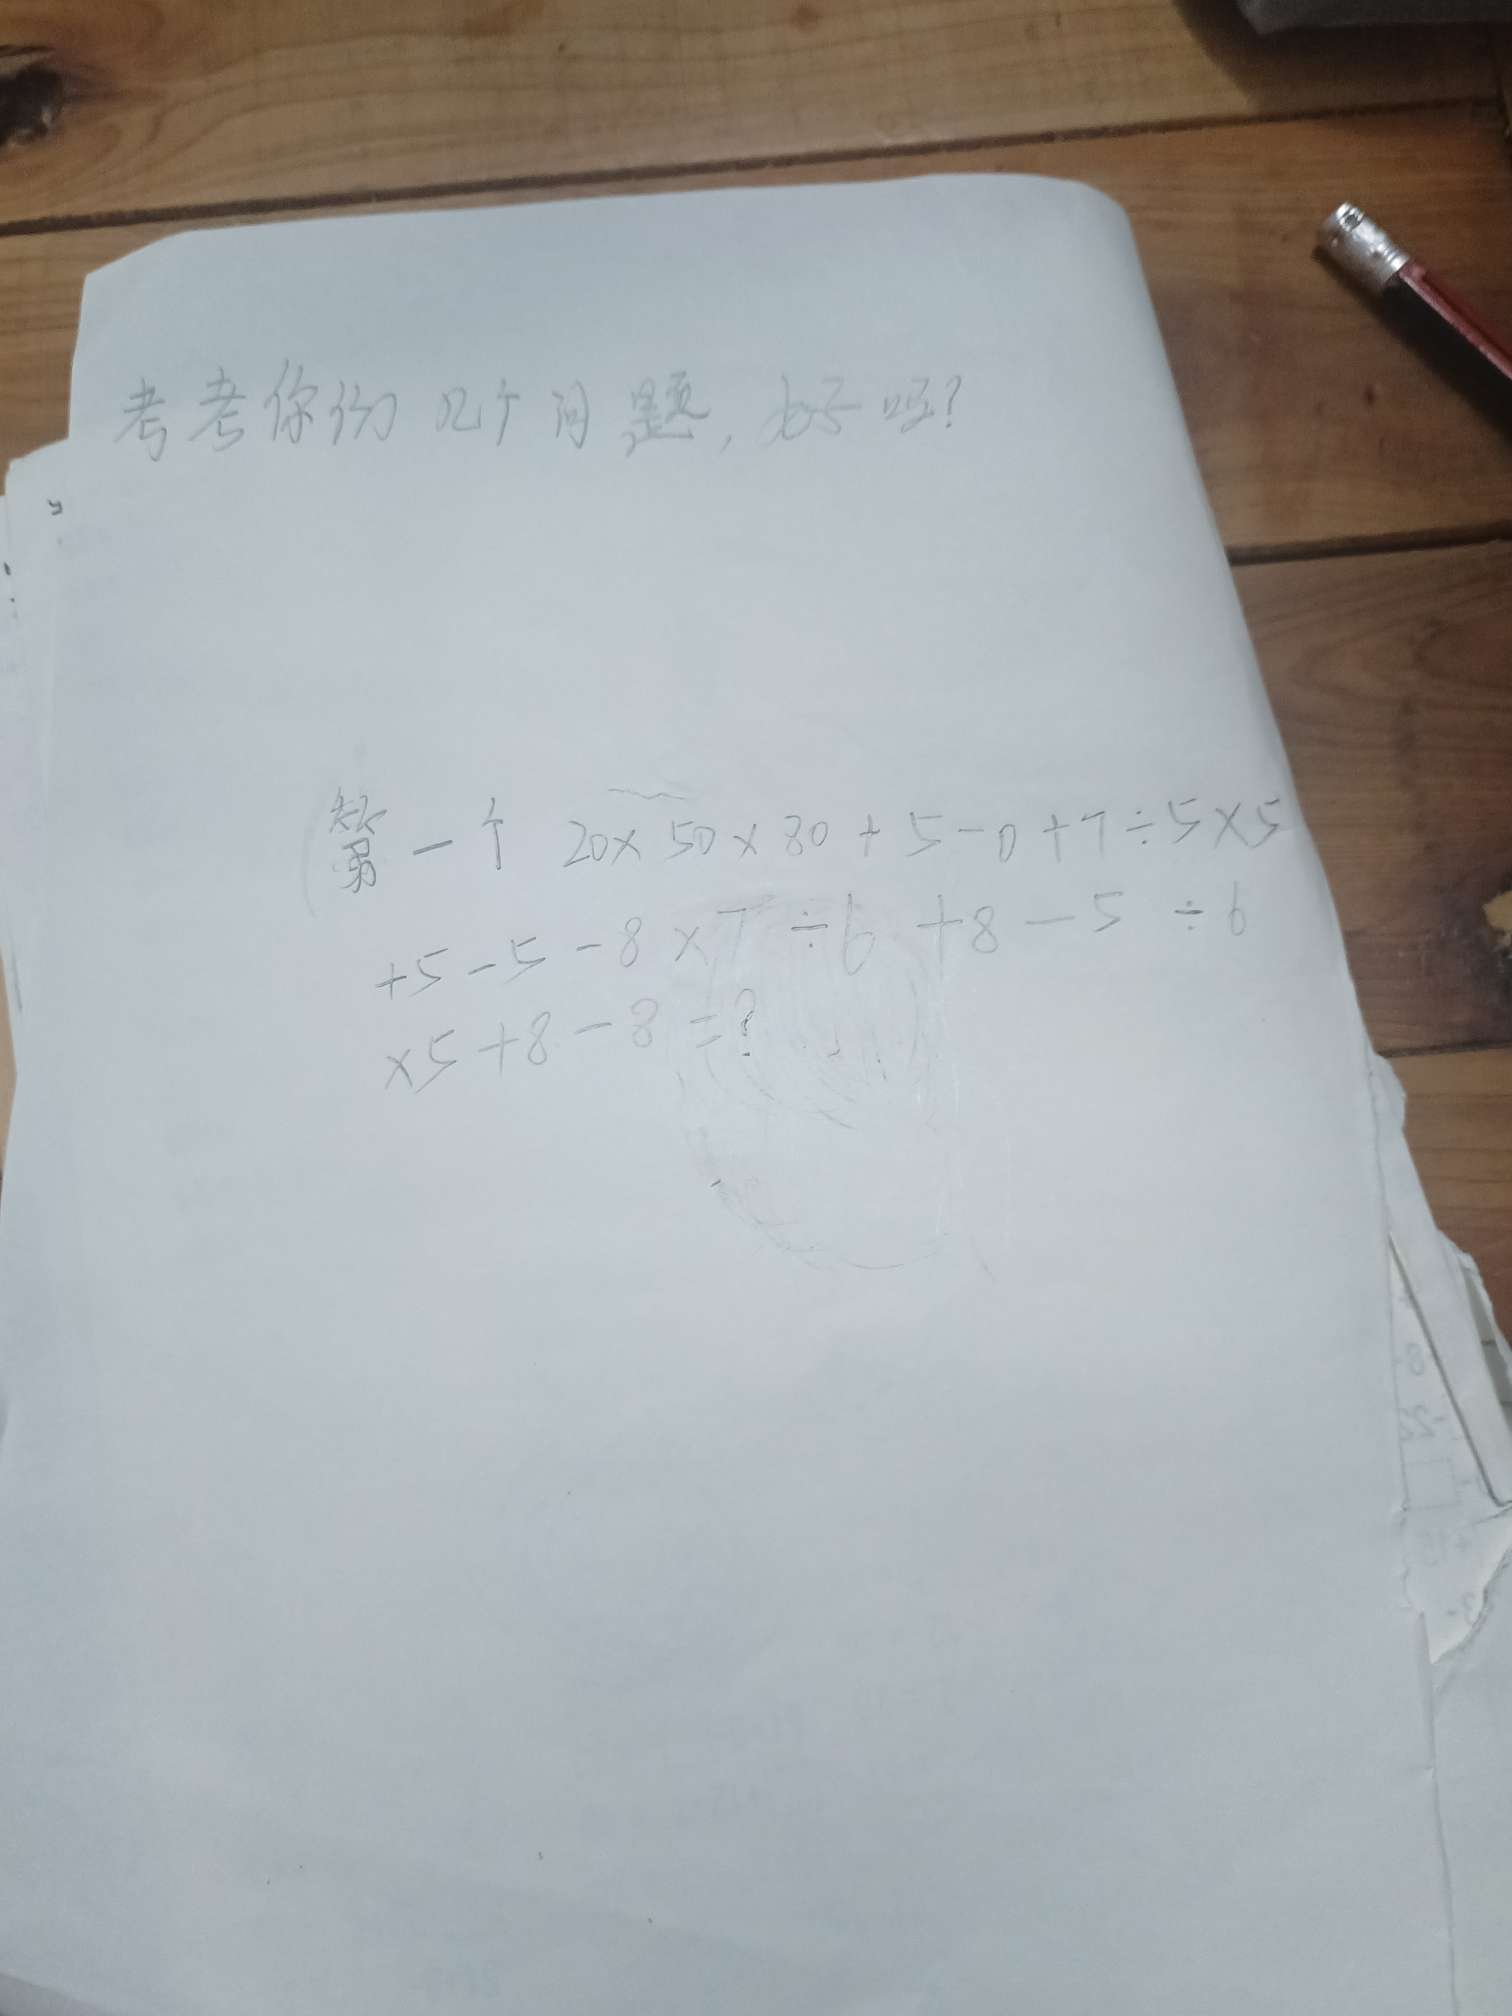 考考你们几个问题，好吗？
第一个 20×50×80+5-0+7÷5×5
+5-5-8×7÷6+8-5÷6
×5+8-8=?